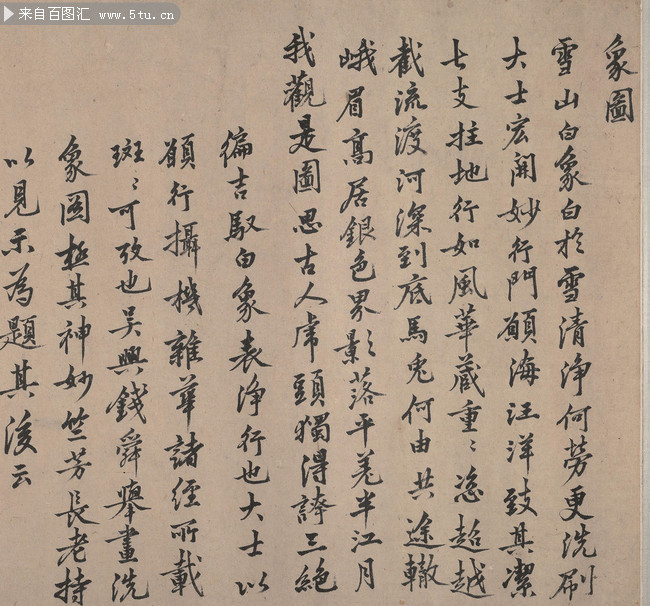 来自百图汇
www.5tu.cn
象圖
雪山白象白於雪清淨何勞更洗刷
大士宏開妙行門願海汪洋致其潔
七支拄地行如風華藏重〻恣超越
截流渡河深到底馬兔何由共途轍
峨眉高居銀色界影落平羌半江月
我觀是圖思古人虎頭獨得誇三絕
徧吉馭白象表淨行也大士以
願行攝機雜華諸經所載
斑〻可攷也吳興錢舜舉畫洗
象圖極其神妙竺芳長老持
以見示為題其後云